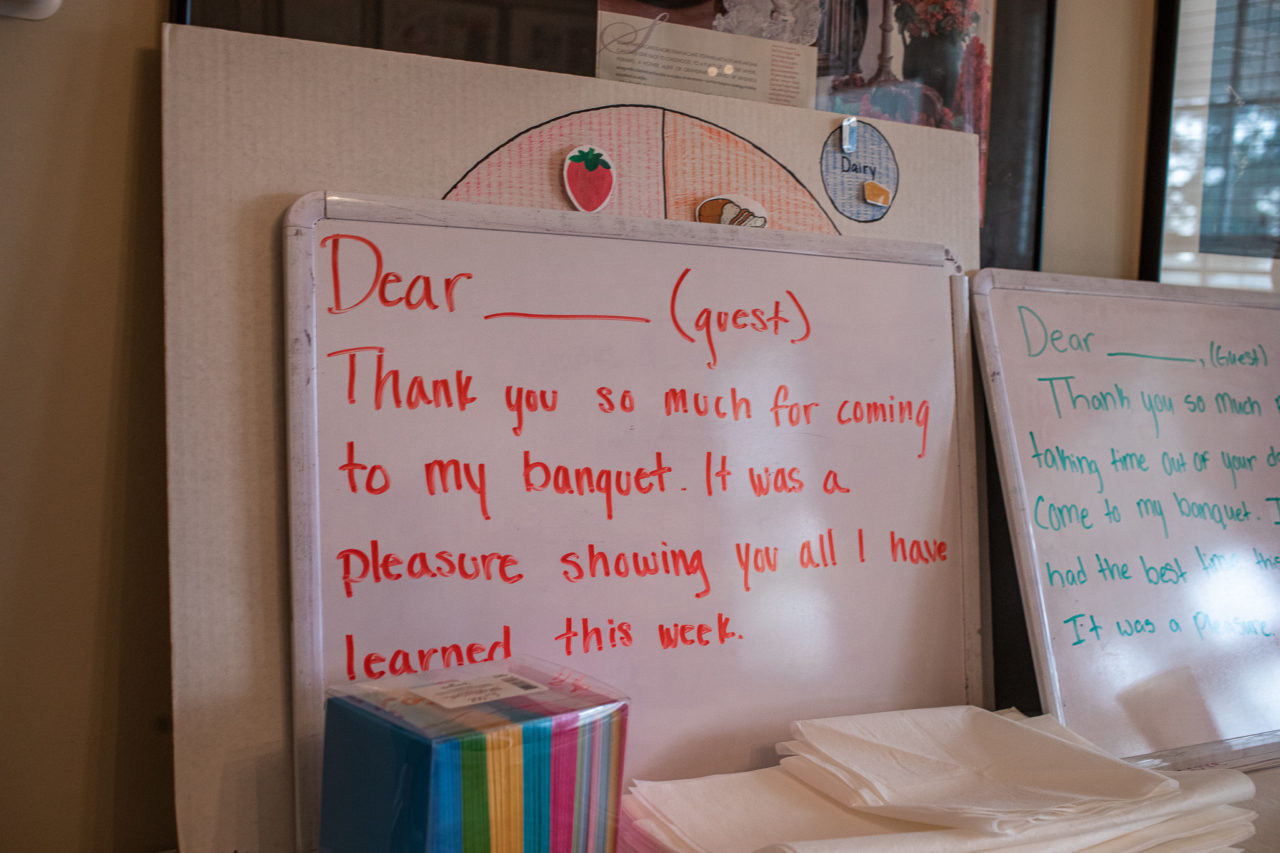 Dairy
Dear ______ (guest)
Thank you so much for coming
to my banquet. It was a
pleasure showing you all I have
learned this week.
Dear ______, (Guest)
Thank you so much
taking time out of your
come to my banquet. I
had the best time
It was a pleasure.